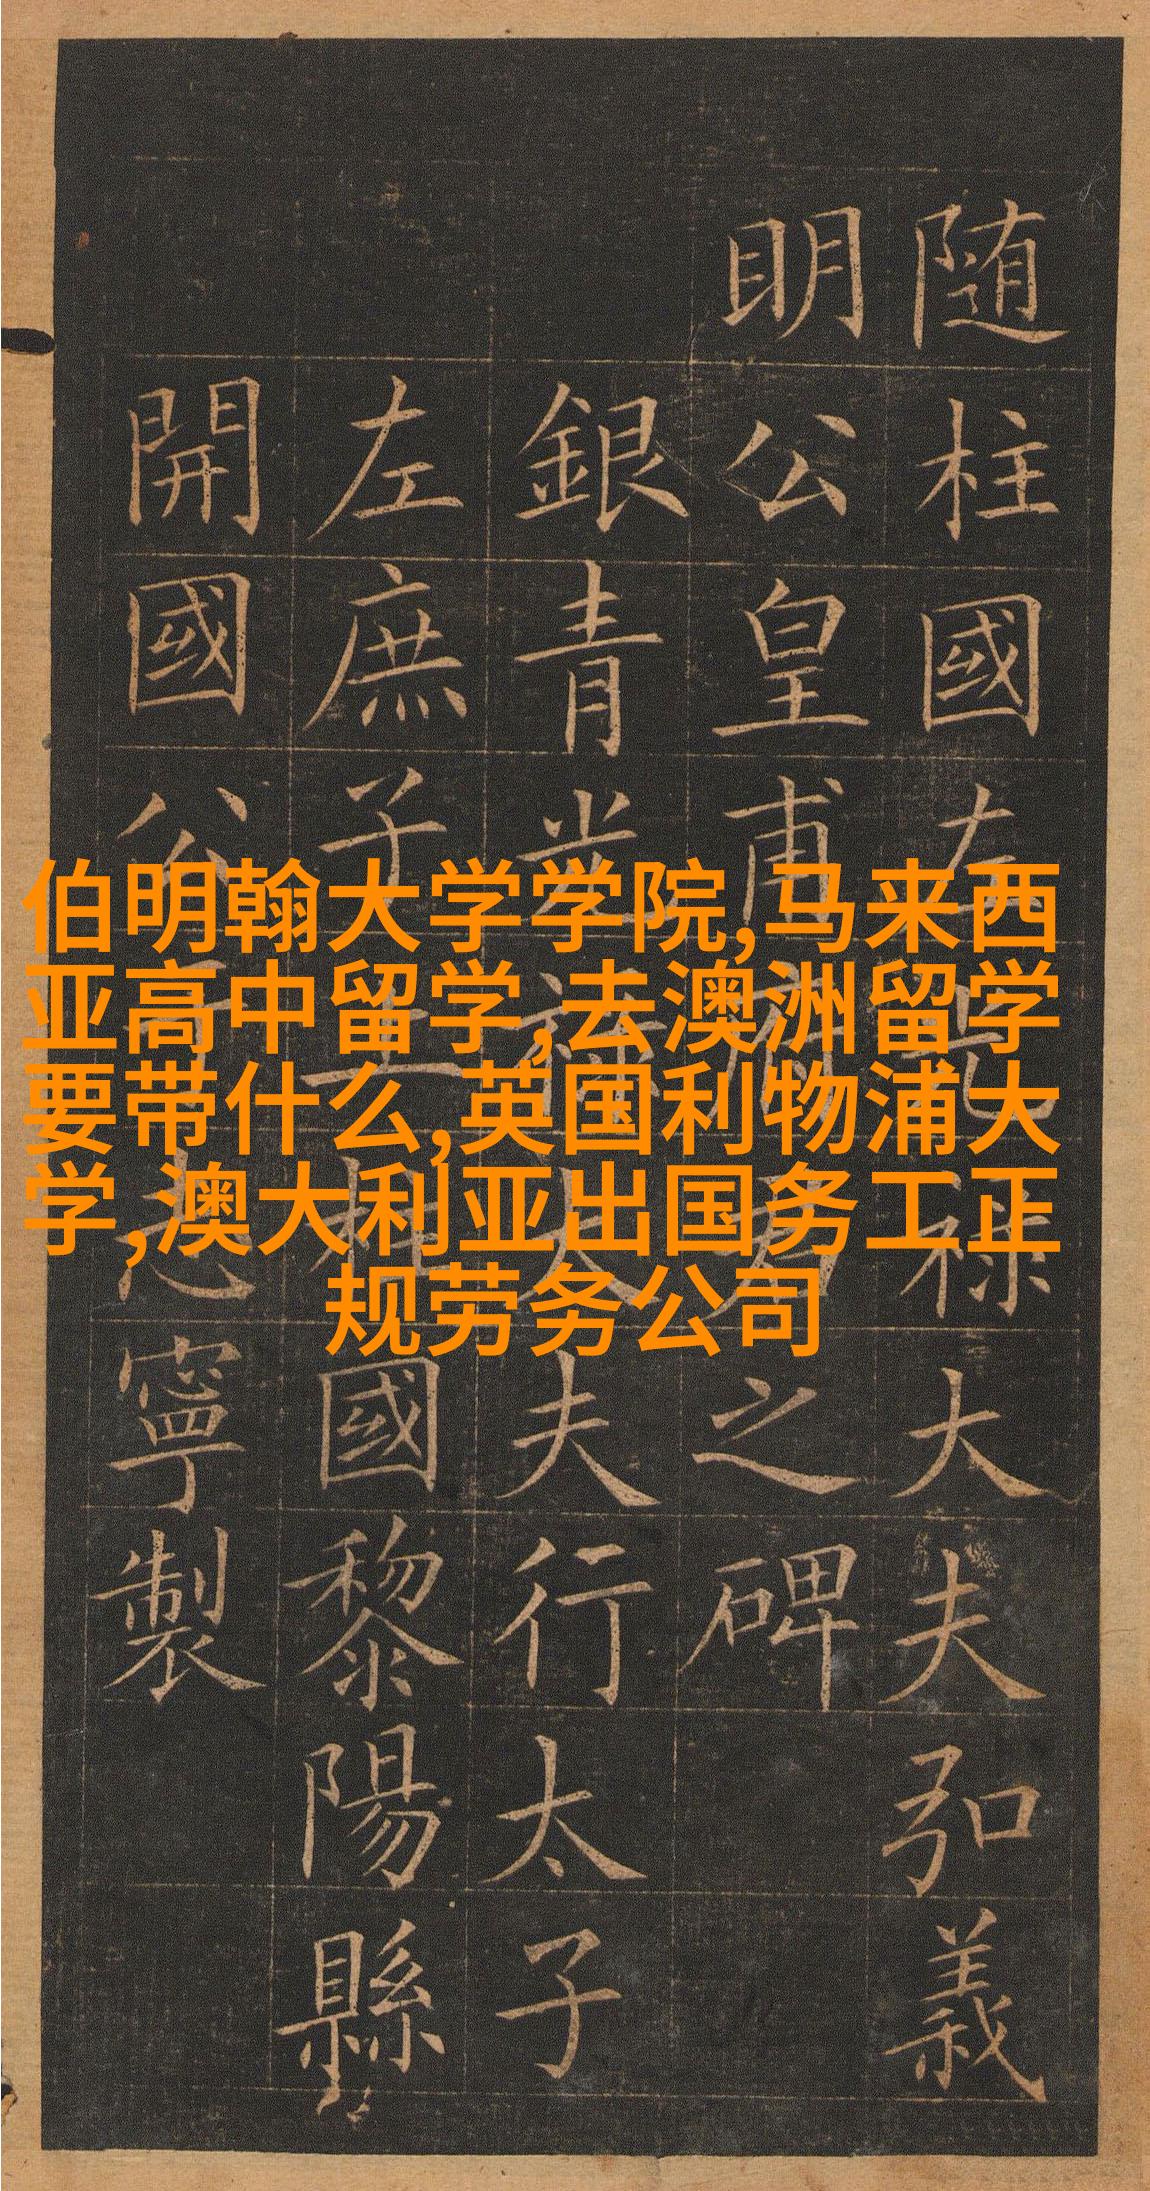 随柱國左光禄大夫弘義
明公皇甫府君之碑
銀青光禄大夫行太子
左庶子上柱國黎陽縣
開國公于志寧製
伯明翰大学学院,马来西
亚高中留学,去澳洲留学
要带什么,英国利物浦大
学,澳大利亚出国务工正
规劳务公司